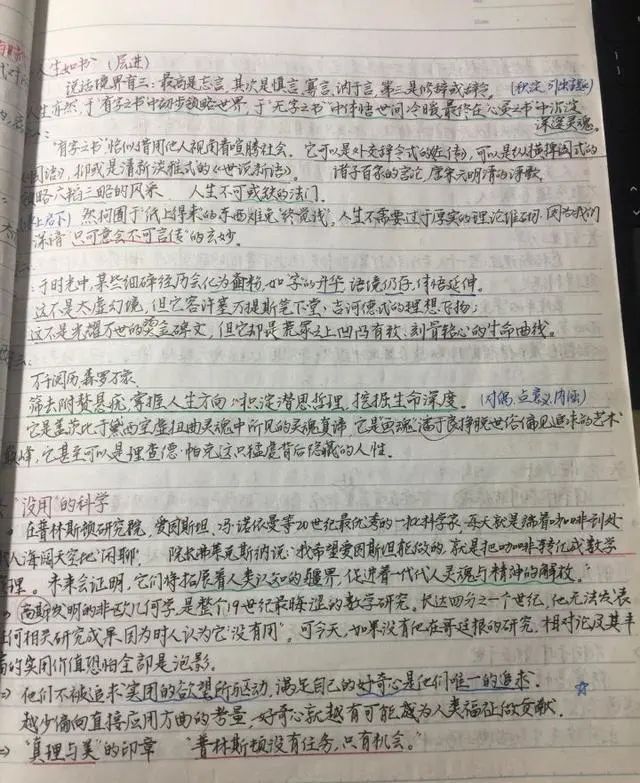 人生如书 (层进)
说话境界有三：最高是忘言，其次是慎言、寡言、讷于言，第三是修辞或辞令。
人生亦然，于"有字之书"中初步领略世界，于"无字之书"中体悟世间冷暖，最终在心灵之书中沉淀
深邃灵魂。
"有字之书"恰似借用他人视角看喧腾社会。它可以是外交辞令式的《左传》，可以是纵横捭阖式的
《国语》，抑或是清新淡雅式的《世说新语》。 诸子百家的言论，唐宋元明清的诗歌
领略六韬三略的风采 人生不可或缺的法门。
(承上启下) 然拘囿于"纸上得来"的东西难免"终觉浅"，人生不需要过于厚实的理论堆砌，因为我们
深谙"只可意会不可言传"的玄妙。
于时光中，某些细碎经历会化为齑粉，如字的升华，语境仍存，体悟延伸。
这不是太虚幻境，但它容许塞万提斯笔下堂·吉诃德式的理想飞扬；
这不是光耀万世的碑文，但它却是荒冢之上凹凸有致、刻骨铭心的生命曲线。
于阅历森罗万象
筛去附赘悬疣，掌握人生方向，积淀睿思哲理，挖掘生命深度。 (对偶，点意义、内涵)
它是盖茨比于黛西空虚扭曲灵魂中所见的灵魂真谛，它是"画魂"潘于良挣脱世俗偏见追求的艺术
巅峰，它甚至可以是理查德·帕克这只猛虎背后隐藏的人性。
"没用"的科学
在普林斯顿研究院，爱因斯坦、冯·诺依曼等20世纪最优秀的一批科学家，每天就是端着咖啡到处
找人海阔天空地"闲聊" 院长弗莱克斯纳说："我希望爱因斯坦能做的，就是把咖啡转化成数学
定理。未来会证明，它们将拓展着人类认知的疆界，促进着一代代人灵魂与精神的解放。"
高斯发明的非欧几何学，是整个19世纪最晦涩的数学研究。长达四分之一个世纪，他无法发表
任何相关研究成果，因为时人认为它"没有用"。可今天，如果没有他在哥廷根的研究，相对论及其丰
富的实用价值恐怕全部是泡影。
他们不被追求实用的欲望所驱动，满足自己的好奇心是他们唯一的追求。
越少偏向直接应用方面的考量，好奇心就越有可能为人类福祉做贡献。
"真理与美"的印章 "普林斯顿没有任务，只有机会。"